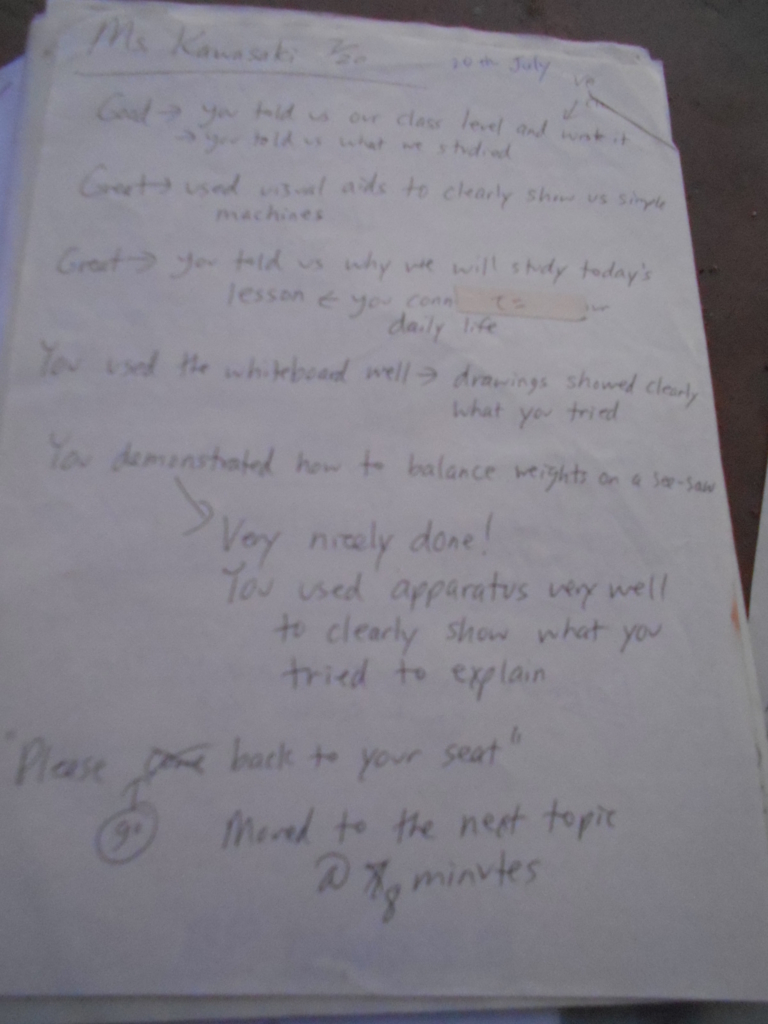 Ms Kawasaki 7/20 20th July
Good → you told us our class level and wrote it
→ you told us what we studied
Great → used visual aids to clearly show us simple
machines
Great → you told us why we will study today's
lesson ← you conn
daily life
You used the whiteboard well → drawings showed clearly
what you tried
You demonstrated how to balance weights on a see-saw
Very nicely done!
You used apparatus very well
to clearly show what you
tried to explain
"Please come back to your seat"
go
Moved to the next topic
@ 8 minutes